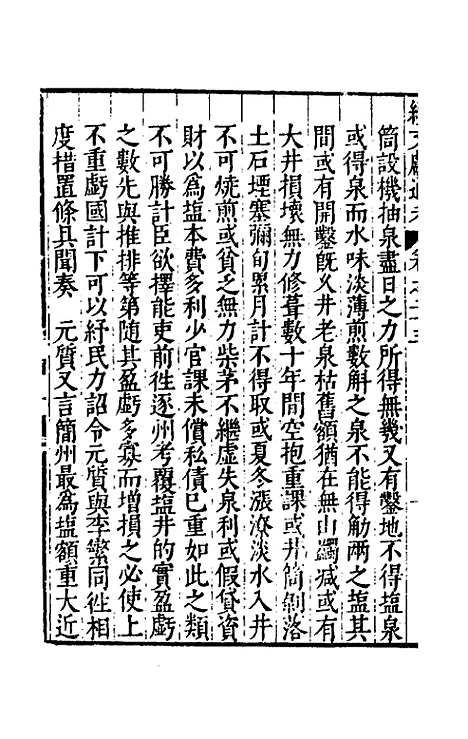 續文獻通考 卷之二十三
筒設機抽泉盡日之力所得無幾又有鑿地不得塩泉
或得泉而水味淡薄煎數斛之泉不能得觔兩之塩其
間或有開鑿旣久井老泉枯舊額猶在無由蠲減或有
大井損壞無力修葺數十年間空抱重課或井筒剝落
土石堙塞彌旬累月計不得取或夏冬漲潦淡水入井
不可燒煎或貧乏無力柴茅不繼虛失泉利或假貸資
財以爲塩本費多利少官課未償私債已重如此之類
不可勝計臣欲擇能吏前徃逐州考覆塩井的實盈虧
之數先與推排等第隨其盈虧多寡而增損之必使上
不重虧國計下可以紓民力詔令元質與李蘩同徃相
度措置條具聞奏 元質又言簡州最爲塩額重大近